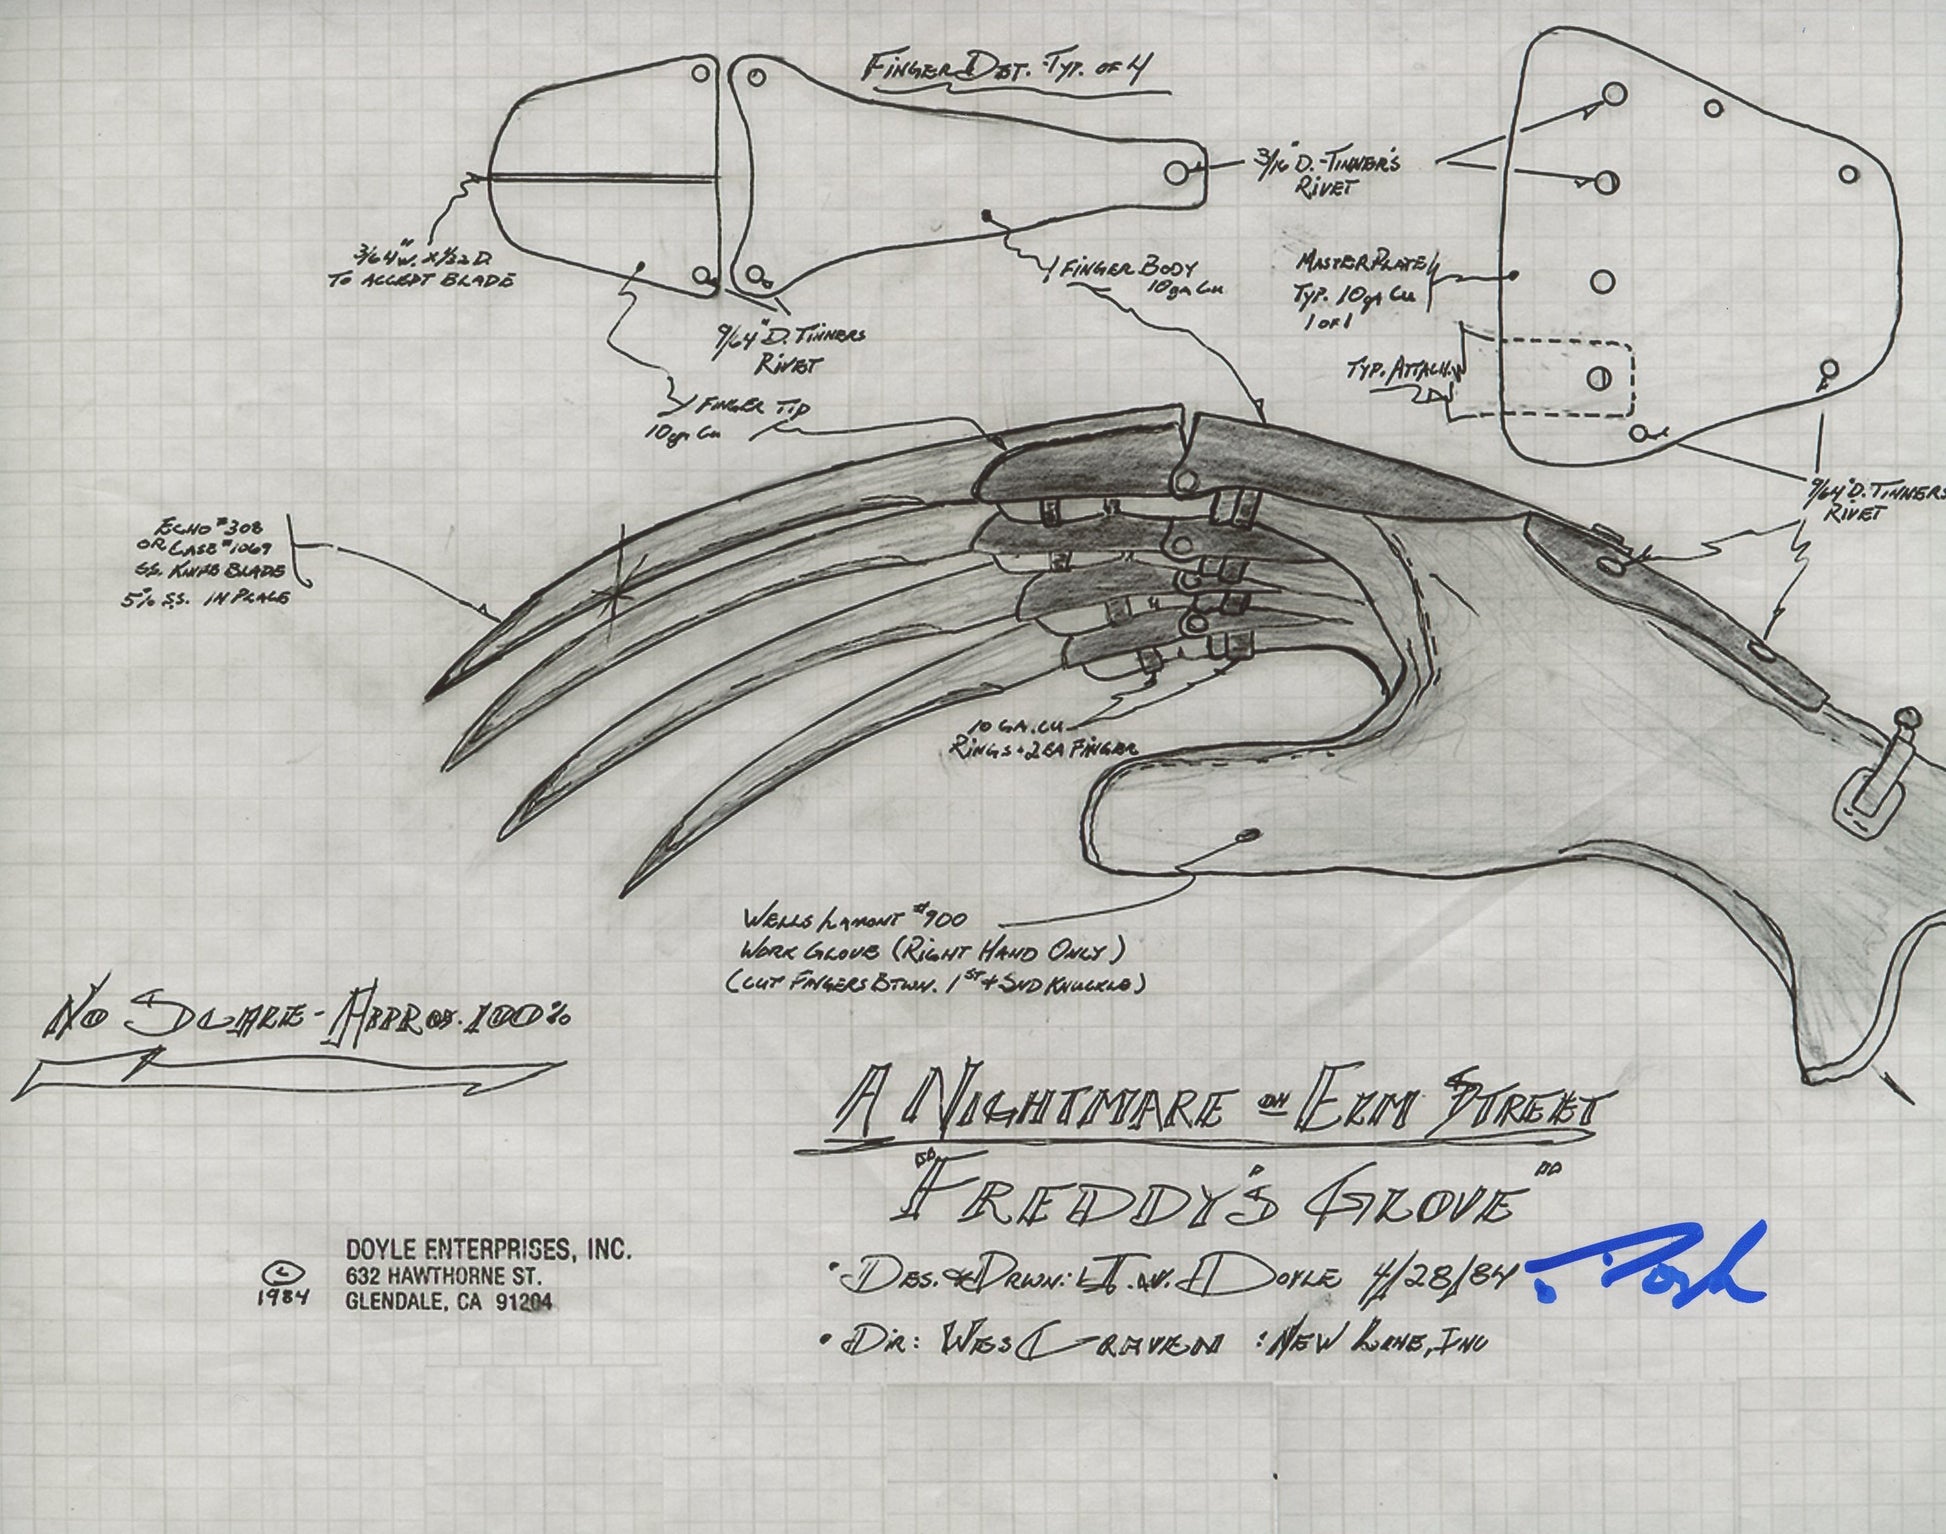 Finger Det. Typ. of 4
3/16" D. - Tinner's
Rivet
3/64" W. x 1/32 D.
To Accept Blade
Finger Body
10ga Cu
Master Plate
Typ. 10ga Cu
1 of 1
9/64" D. Tinners
Rivet
Typ. Attach.
Finger Tip
10ga Cu
9/64" D. Tinners
Rivet
Echo #308
or Case #1069
SS. Knife Blade
In Place
10 Ga. Cu
Rings - 2 Ea Finger
Wells Lamont #900
Work Glove (Right Hand Only)
(Cut Fingers Btwn. 1st + 2nd Knuckle)
No Scale - Approx. 100%
A Nightmare on Elm Street
"Freddy's Glove"
DOYLE ENTERPRISES, INC.
632 HAWTHORNE ST.
GLENDALE, CA 91204
© 1984
• Des. & Drwn: Doyle 4/28/84
• Dir: Wes Craven : New Line, Inc